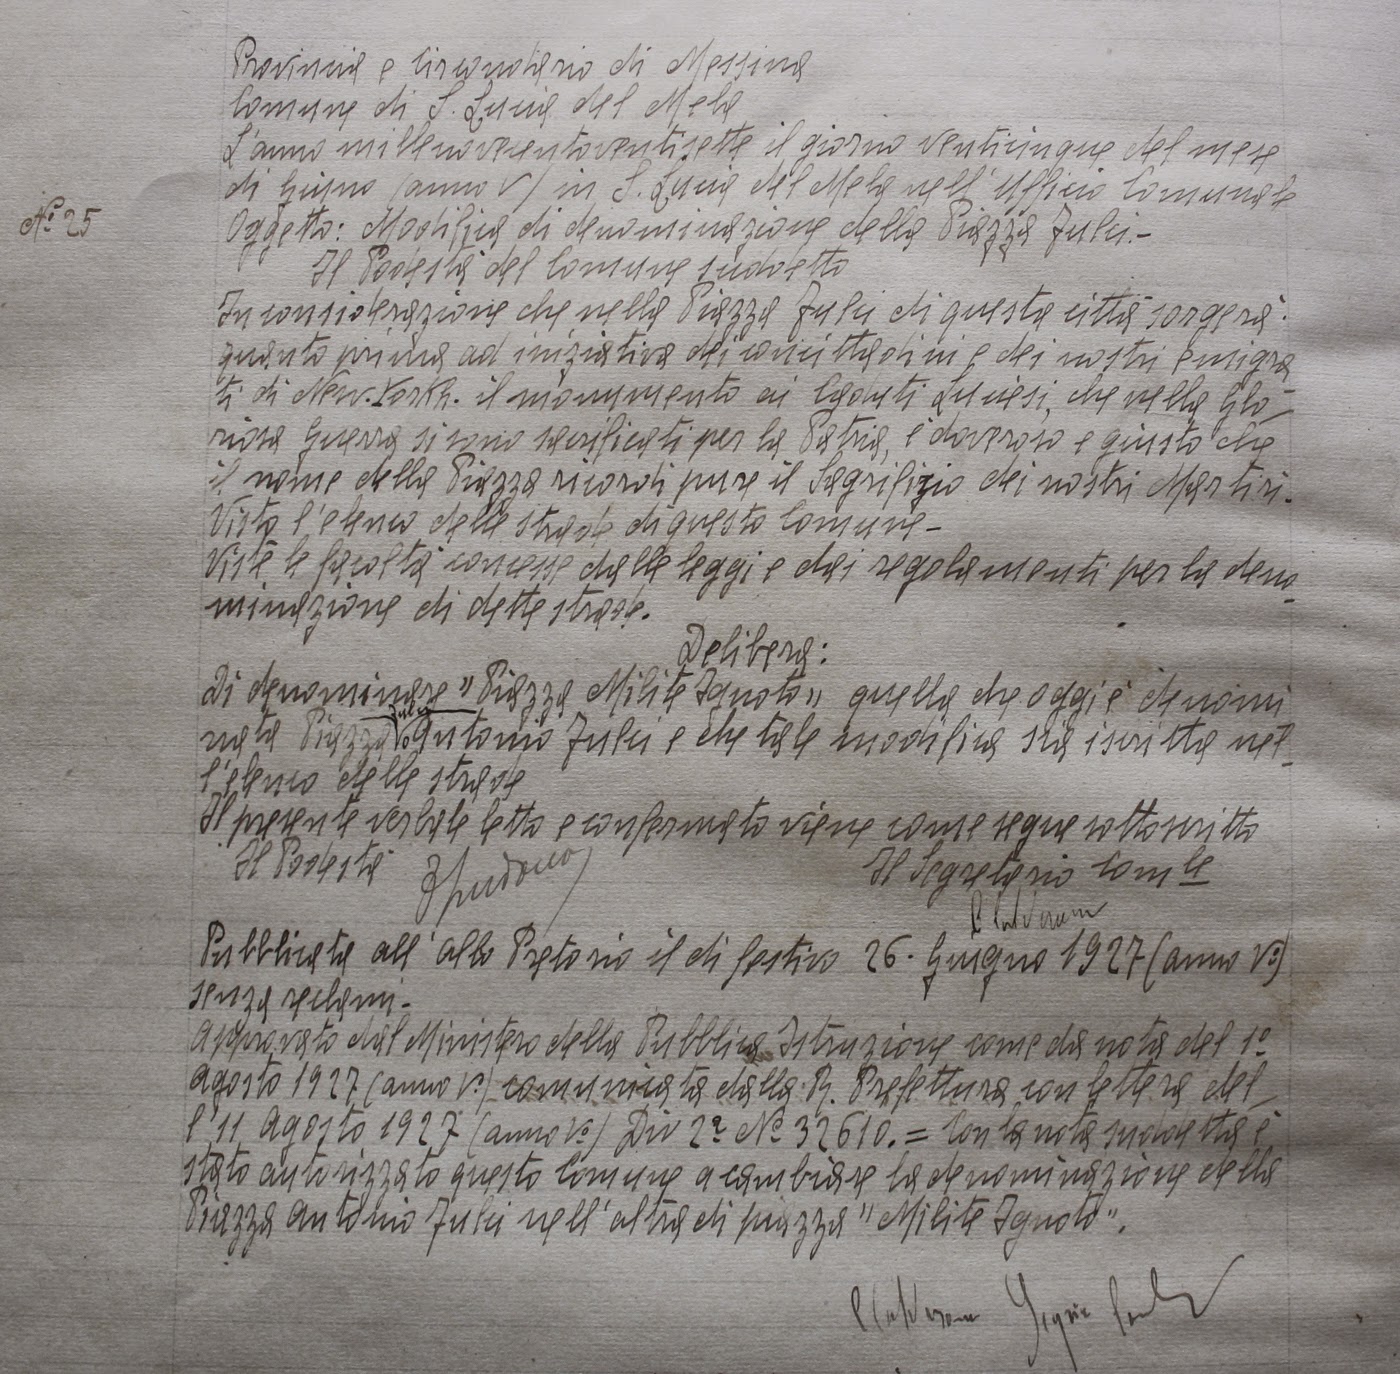 Provincia e Circondario di Messina
Comune di S. Lucia del Mela
L'anno millenovecentoventisette il giorno venticinque del mese
di Giuno (anno V) in S. Lucia del Mela nell'Ufficio Comunale
N.º 25
Oggetto: Modifica di denominazione della Piazza Fulci.-
Il Podestà del Comune sudetto
In considerazione che nella Piazza Fulci di questa città sorgerà
quanto prima ad iniziativa dei concittadini e dei nostri emigra-
ti di New-York. il monumento ai Caduti Luciesi, che nella Glo-
riosa Guerra si sono sacrificati per la Patria, è doveroso e giusto che
il nome della Piazza ricordi pure il Sagrifizio dei nostri Martiri.
Visto l'elenco delle strade di questo Comune-
Viste le facoltà concesse dalle leggi e dai regolamenti per la deno-
minazione di dette strade.
Delibera:
Di denominare "Piazza Milite Ignoto" quella che oggi è denomi
nata Piazza Antonio Fulci e che tale modifica sia iscritta nel-
l'elenco delle strade
Il presente verbale letto e confermato viene come segue sottoscritto
Il Podestà
Il Segretario Comle
Pubblicata all'albo Pretorio il dì festivo 26. Giugno 1927 (anno Vº)
senza reclami-
Approvato dal Ministero della Pubblica Istruzione come da nota del 1º
Agosto 1927 (anno Vº) comunicata dalla R. Prefettura con lettera del-
l'11 Agosto 1927 (anno Vº) Div 2ª Nº 32610.= Con la nota suddetta è
stato autorizzato questo Comune a cambiare la denominazione della
Piazza Antonio Fulci nell'altra di piazza "Milite Ignoto".